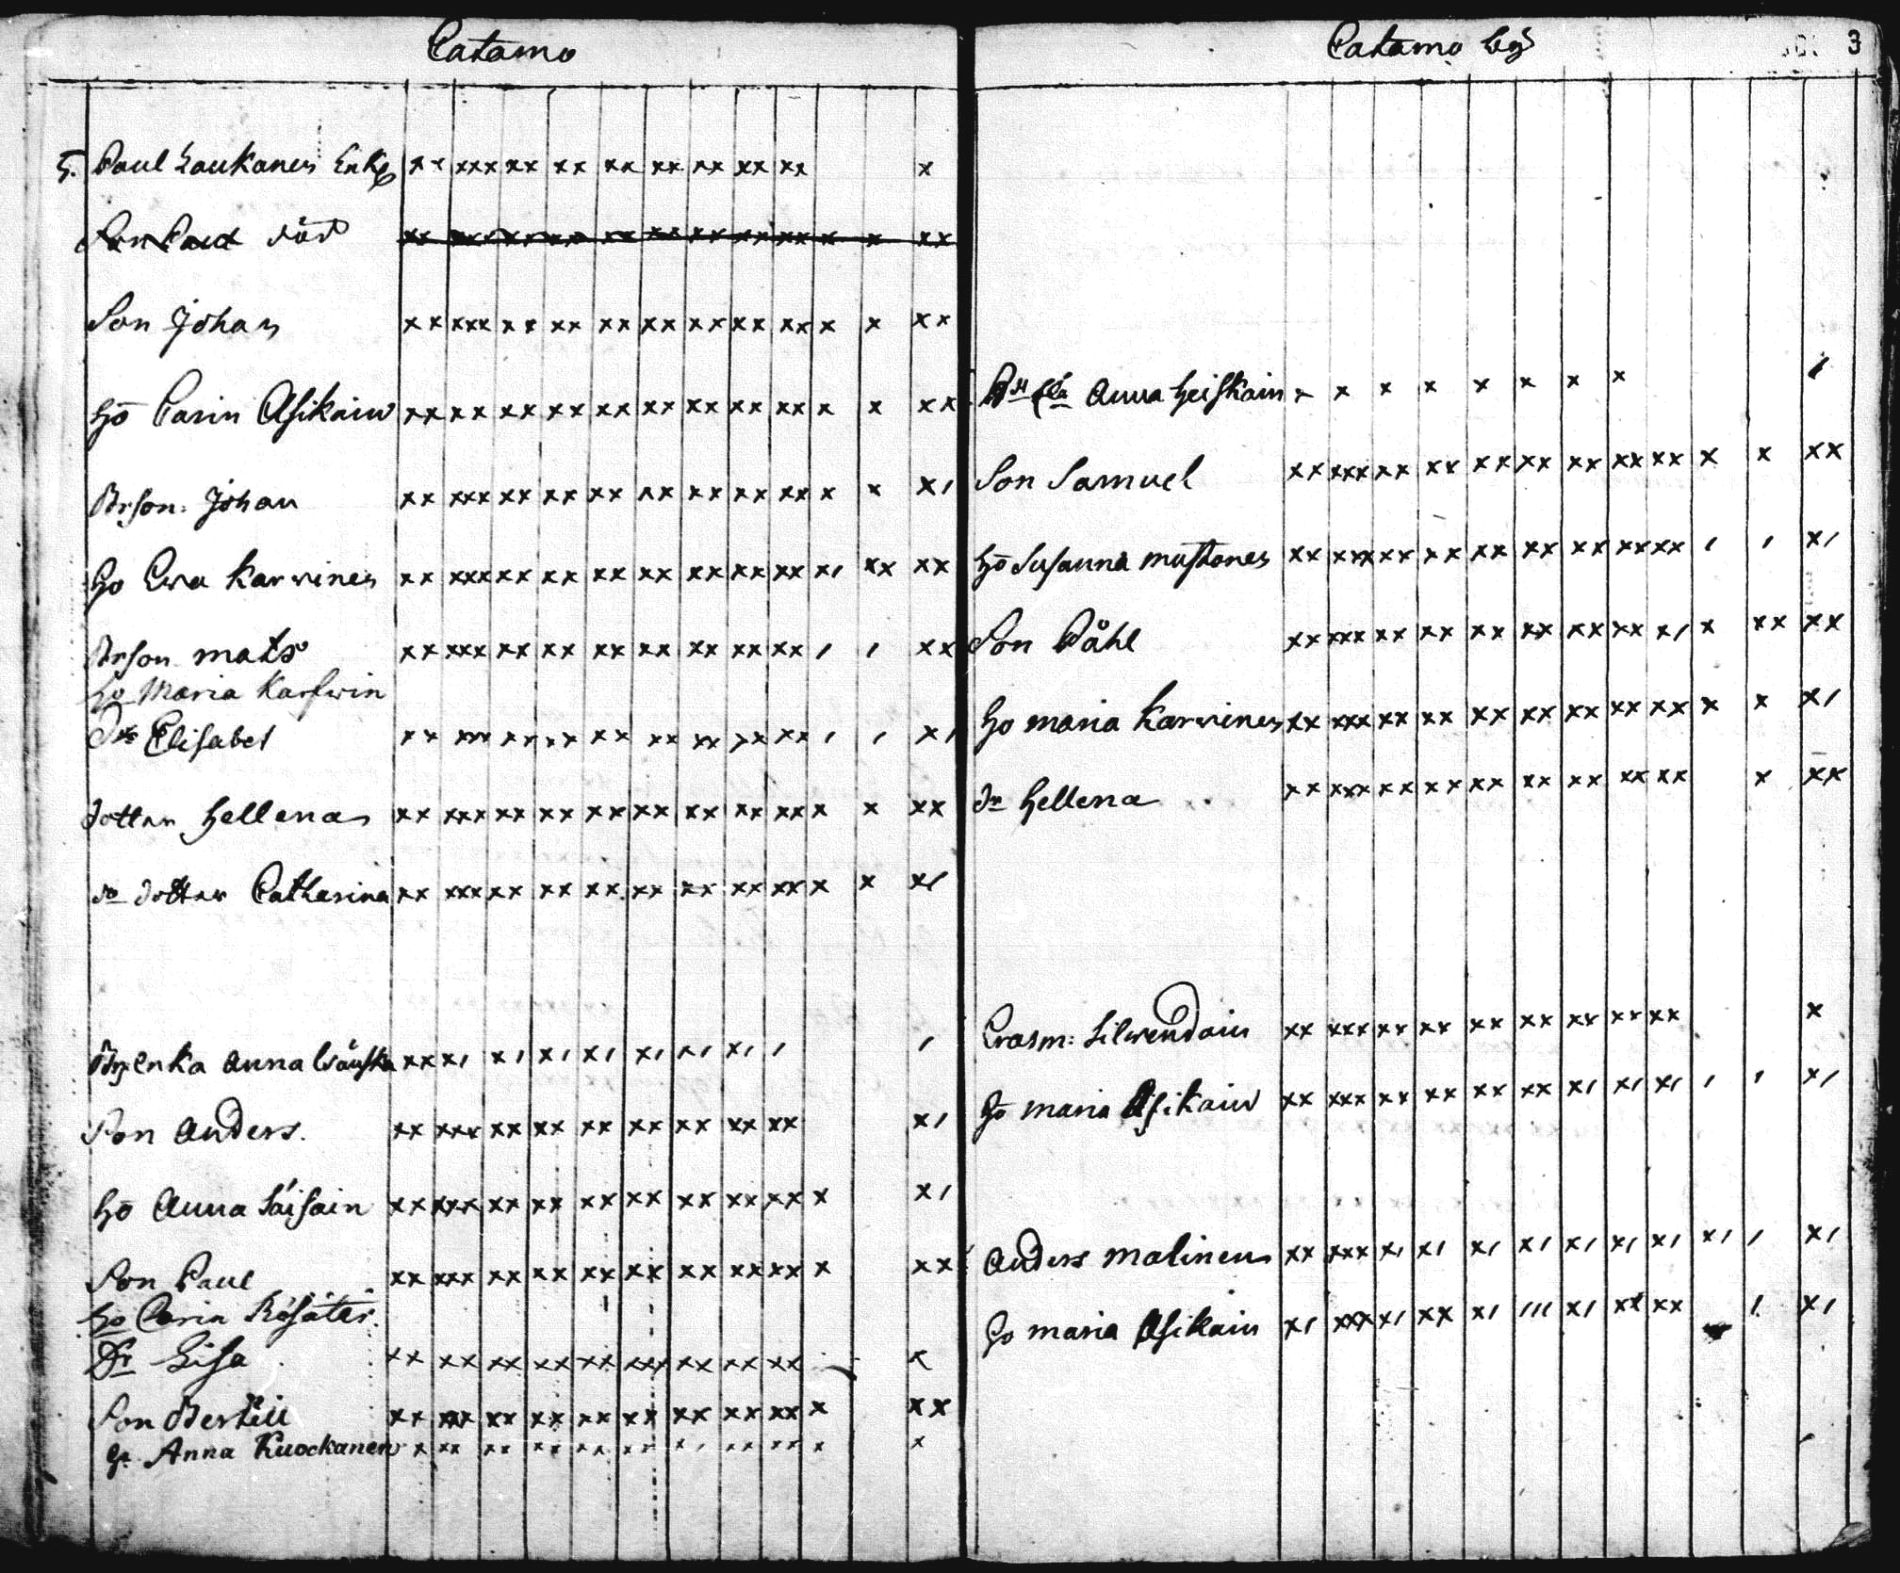 Catamo
5. Paul Laukanen Enka xx xxx xx xx xx xx xx xx xx x
Son Paul död xx xx xx xx xx xx xx xx xx x x xx
Son Johan xx xxx xx xx xx xx xx xx xx x x xx
Ho Carin Asikain xx xx xx xx xx xx xx xx xx x x xx
Brson: Johan xx xxx xx xx xx xx xx xx xx x x x/
Ho Eva Karvinen xx xxx xx xx xx xx xx xx xx x/ xx xx
Brson mats xx xxx xx xx xx xx xx xx xx / / xx
Ho Maria Karfwin
Dr Elisabet xx xxx xx xx xx xx xx xx xx / / x/
dotter Hellena xx xxx xx xx xx xx xx xx xx x x xx
dotter Catharina xx xxx xx xx xx xx xx xx xx x x x/
enka Anna xx x/ x/ x/ x/ x/ x/ x/ / /
Son Anders. xx xxx xx xx xx xx xx xx xx x/
Ho Anna Säisäin xx xxx xx xx xx xx xx xx xx x x/
Son Paul xx xxx xx xx xx xx xx xx xx x xx
Ho Carin
Dr Lisa xx xx xx xx xx xx xx xx xx x
Son Bertill xx xxx xx xx xx xx xx xx xx x xx
H. Anna Kuockanen x xx xx xx xx xx x/ xx xx x x
Catamo by 3
Anna Heiskain x x x x x x x x /
Son Samuel xx xxx xx xx xx xx xx xx xx x x xx
Ho Susanna mustonen xx xxx xx xx xx xx xx xx xx / / x/
Son Påhl xx xxx xx xx xx xx xx xx x/ x xx xx
Ho maria Karvinen xx xxx xx xx xx xx xx xx xx x x x/
dr Hellena xx xxx xx xx xx xx xx xx xx x xx
Erasm: Silvendoin xx xxx xx xx xx xx xx xx xx x
Ho maria Asikain xx xxx xx xx xx xx x/ x/ x/ / / x/
Anders malinen xx xxx x/ x/ x/ x/ x/ x/ x/ x/ / x/
Ho maria Asikain x/ xxx x/ xx x/ /// x/ xx xx / x/